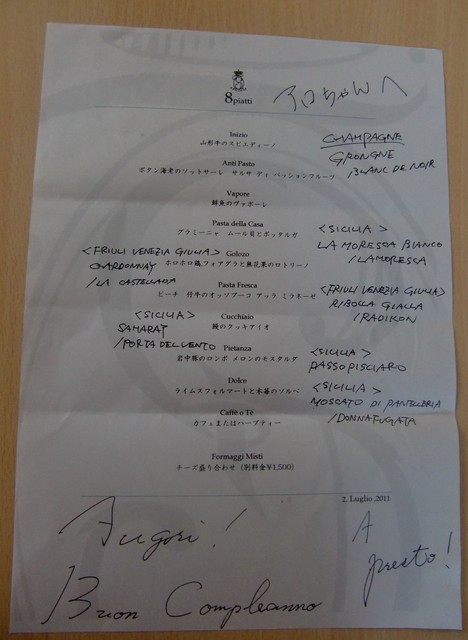 8piatti
アロちゃんへ
Inizio
山形牛のスピエディーノ
CHAMPAGNE
GRONGNE
BLANC DE NOIR
Anti Pasto
ボタン海老のソットサーレ サルサ ディ パッションフルーツ
Vapore
鮮魚のヴァポーレ
Pasta della Casa
グラミーニャ ムール貝とボッタルガ
<SICILIA>
LA MORESCA BIANCO
/LAMORESCA
<FRIULI VENEZIA GIULIA>
CHARDONNAY
/LA CASTELLADA
Golozo
ホロホロ鶏、フォアグラと無花果のロトリーノ
Pasta Fresca
ピーチ 仔牛のオッソブーコ アッラ ミラネーゼ
<FRIULI VENEZIA GIULIA>
RIBOLLA GIALLA
/RADIKON
<SICILIA>
SAHARAY
/PORTA DEL VENTO
Cucchiaio
鰻のクッキアイオ
Pietanza
岩中豚のロンボ メロンのモスタルダ
<SICILIA>
PASSOPISCIARO
Dolce
ライムスフォルマートと木苺のソルベ
<SICILIA>
MOSCATO DI PANTELLERIA
/DONNAFUGATA
Caffè o Tè
カフェまたはハーブティー
Formaggi Misti
チーズ盛り合わせ (別料金¥1,500)
2, Luglio ,2011
Auguri!
Buon Compleanno
A
presto!